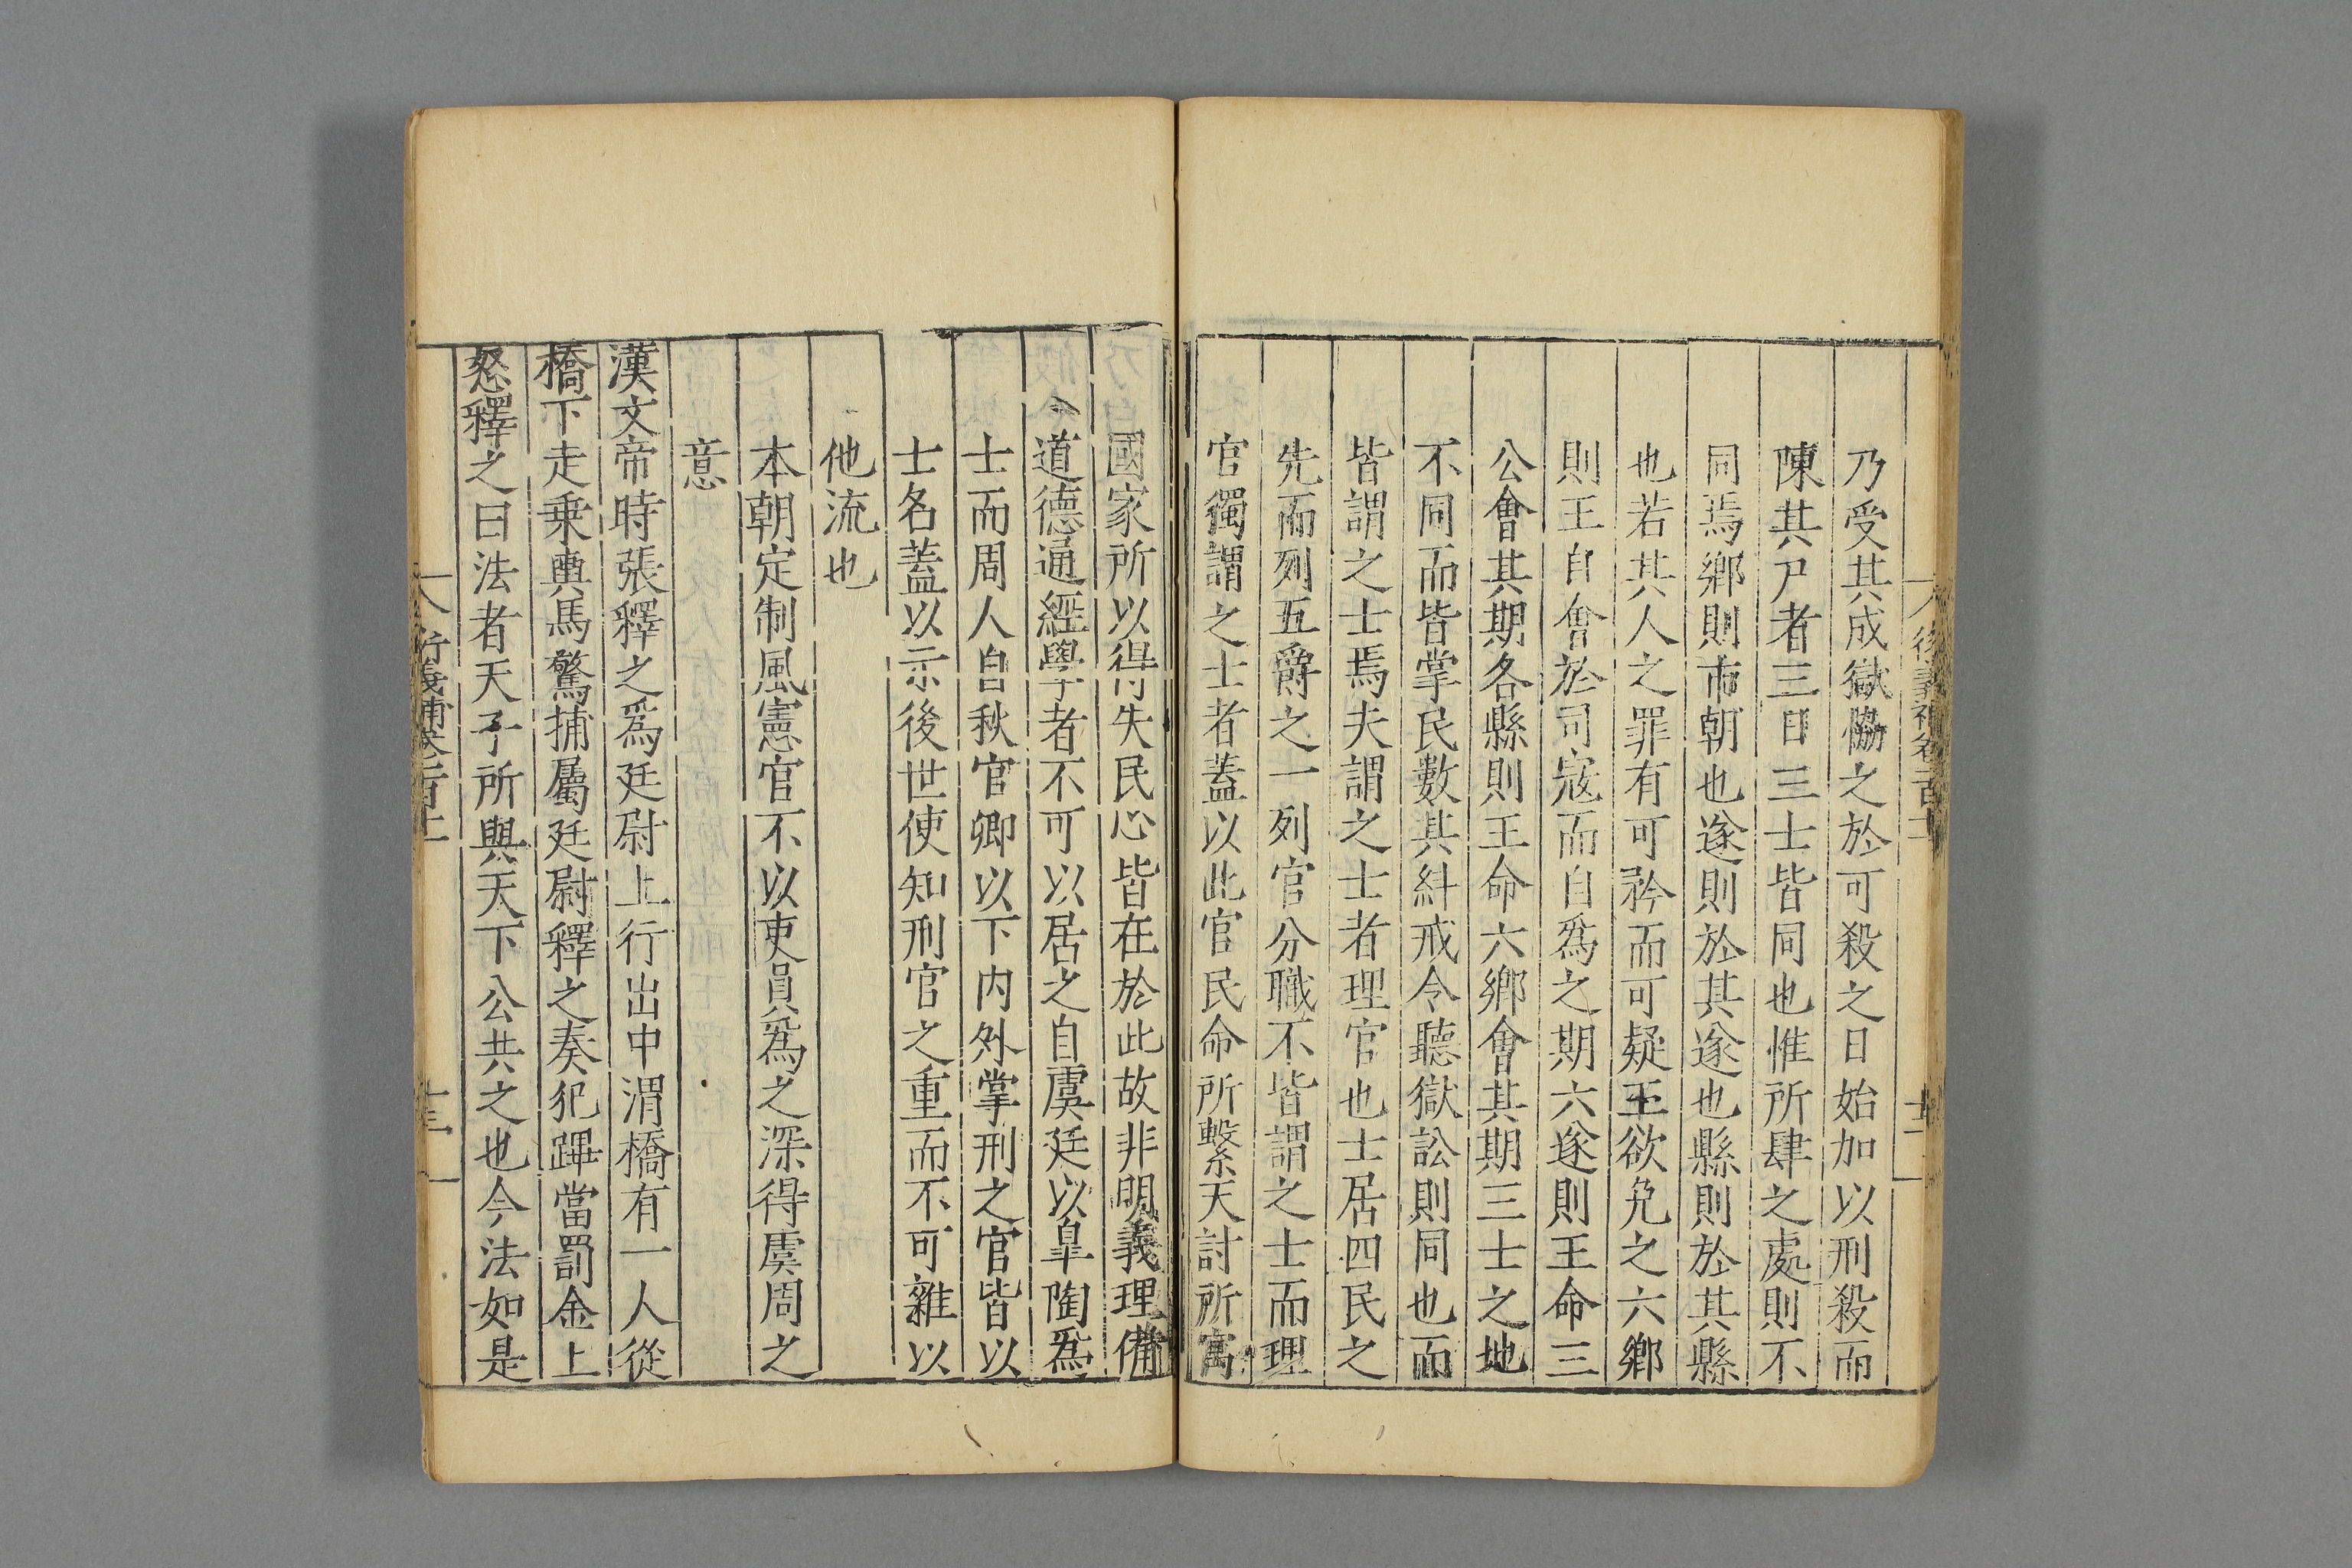 乃受其成獄協之於可殺之日始加以刑殺而
陳其尸者三日三士皆同也惟所肆之處則不
同焉鄉則市朝也遂則於其遂也縣則於其縣
也若其人之罪有可矜而可疑王欲免之六鄉
則王自會於司寇而自為之期六遂則王命三
公會其期各縣則王命六鄉會其期三士之地
不同而皆掌民數其糾戒令聽獄訟則同也而
皆謂之士焉夫謂之士者理官也士居四民之
先而列五爵之一列官分職不皆謂之士而理
官獨謂之士者蓋以此官民命所繫天討所寓
國家所以得失民心皆在於此故非明義理備
道德通經學者不可以居之自虞廷以皐陶為
士而周人自秋官卿以下内外掌刑之官皆以
士名蓋以示後世使知刑官之重而不可雜以
他流也
本朝定制風憲官不以吏員爲之深得虞周之
意
漢文帝時張釋之爲廷尉上行出中渭橋有一人從
橋下走乗輿馬驚捕屬廷尉釋之奏犯蹕當罰金上
怒釋之曰法者天子所與天下公共之也今法如是